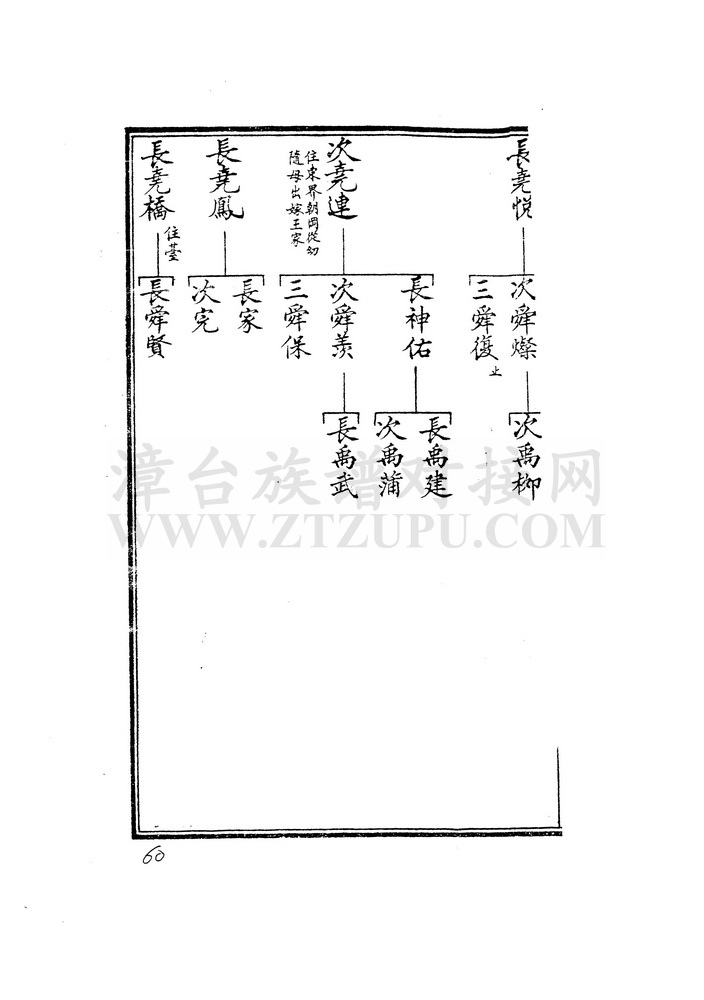 長堯悦
次堯連
住東界朝岡從幼
隨母出嫁王家
長堯鳳
長堯橋
住臺
次舜燦
三舜復
止
長神佑
次舜羨
三舜保
長家
次完
長舜賢
次禹柳
長禹建
次禹蒲
長禹武
漳台族谱对接网
WWW.ZTZUPU.COM
60